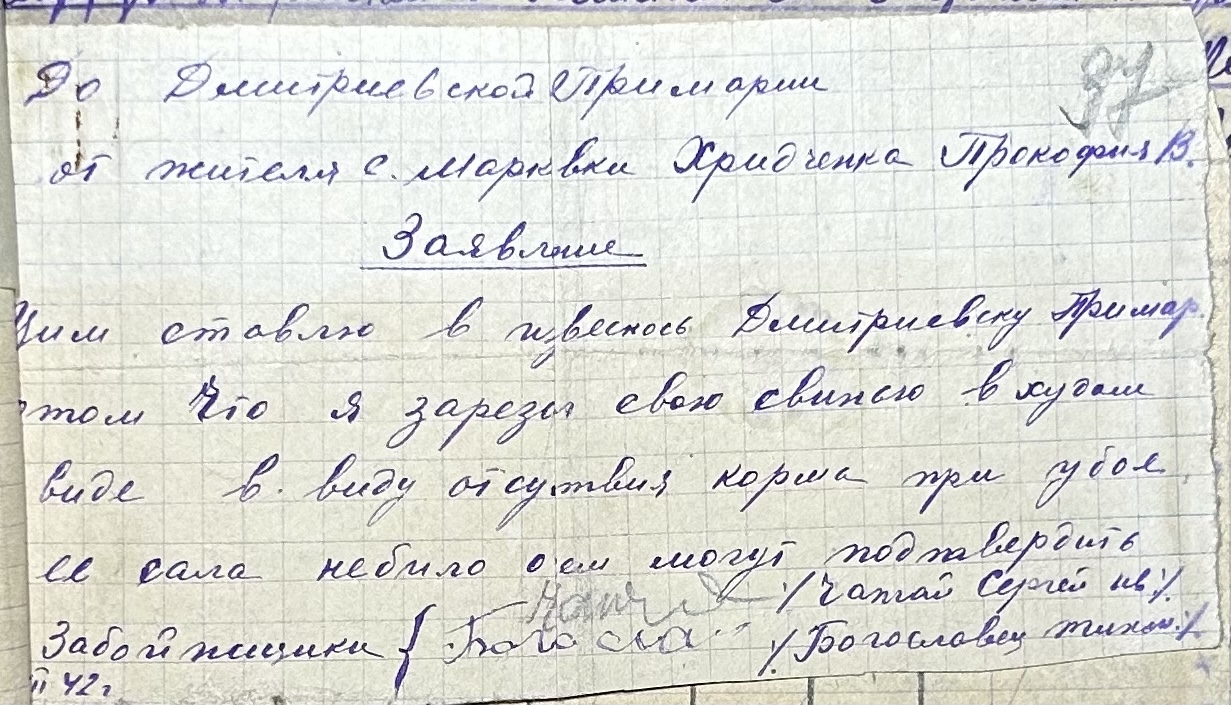 До Дмитриевской Примарии
97
от жителя с. Марквки Хридченка Прокофия В.
Заявление
Цим ставлю в извеснось Дмитриевску Примар
этом что я зарезы свою свинью в худом
виде в виду отсутвия корма при убое
ее сала небило о ем могут подтвердить
/Чапчай Сергей ив/.
Забойжщики { Богосла /Богославец тихон/.
II 42 г